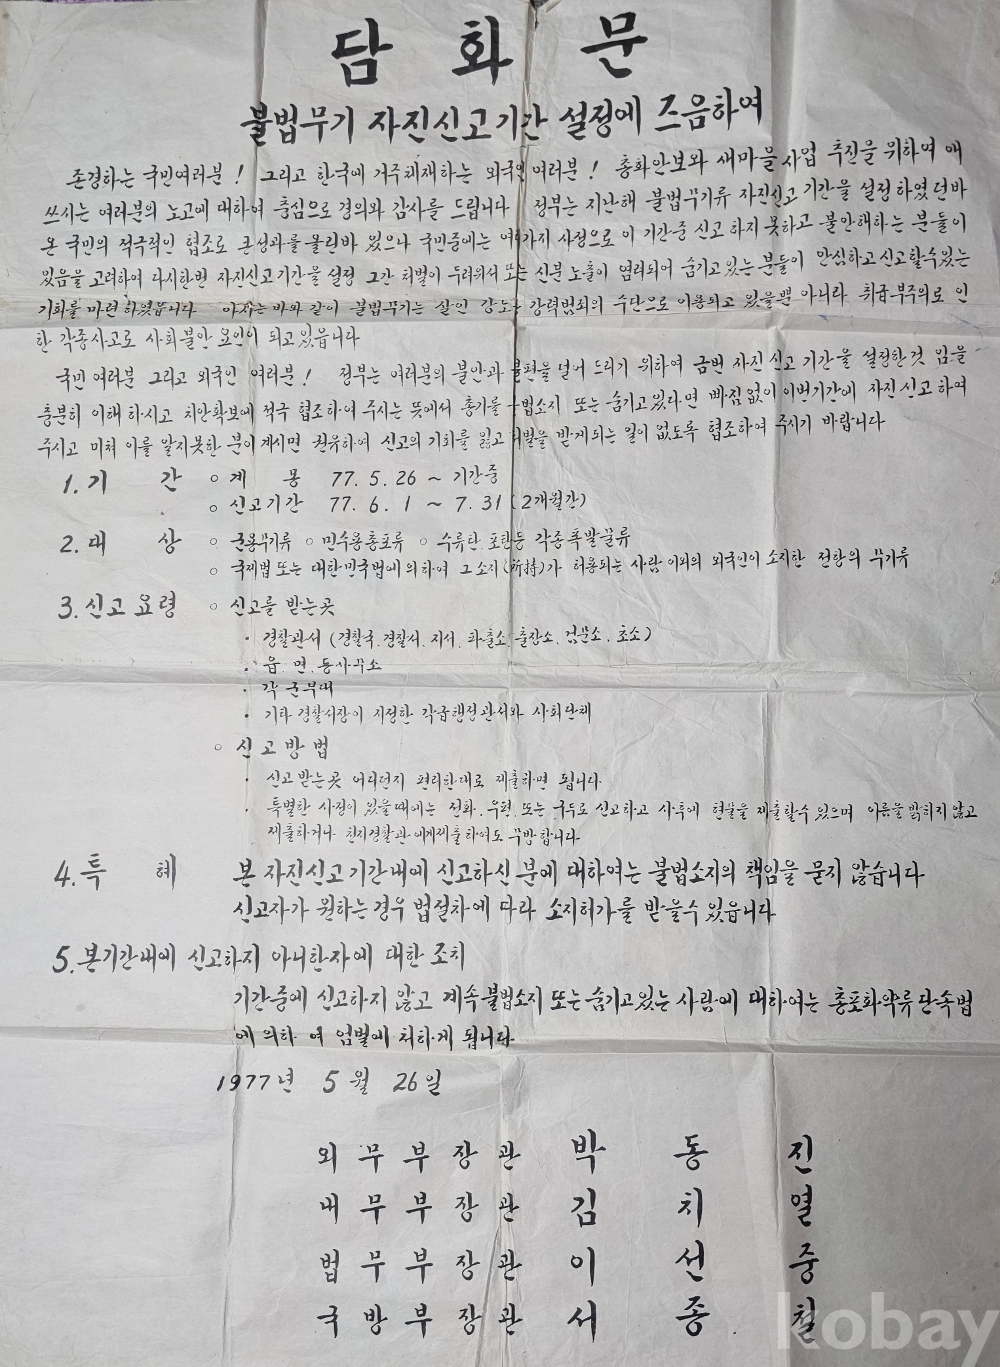 담 화 문
불법무기 자진신고기간 설정에 즈음하여
존경하는 국민여러분! 그리고 한국에 거주체재하는 외국인 여러분! 총화안보와 새마을사업 추진을 위하여 애
쓰시는 여러분의 노고에 대하여 충심으로 경의와 감사를 드립니다 정부는 지난해 불법무기류 자진신고 기간을 설정하였던바
온 국민의 적극적인 협조로 큰성과를 올린바 있으나 국민중에는 여러가지 사정으로 이 기간중 신고하지 못하고 불안해하는 분들이
있음을 고려하여 다시한번 자진신고기간을 설정 그간 처벌이 두려워서 또는 신분노출이 염려되어 숨기고 있는 분들이 안심하고 신고할수있는
기회를 마련하였읍니다 아시는 바와 같이 불법무기는 살인 강도등 강력범죄의 수단으로 이용되고 있을뿐 아니라 취급부주의로 인
한 각종사고로 사회불안 요인이 되고있읍니다
국민 여러분 그리고 외국인 여러분! 정부는 여러분의 불안과 불편을 덜어 드리기 위하여 금번 자진신고 기간을 설정한것 임을
충분히 이해 하시고 치안확보에 적극 협조하여 주시는 뜻에서 총기를 불법소지 또는 숨기고있다면 빠짐없이 이번기간에 자진신고하여
주시고 미쳐 이를 알지못한 분이 계시면 권유하여 신고의 기회를 잃고 처벌을 받게되는 일이 없도록 협조하여 주시기 바랍니다
1. 기 간 ○ 계 몽 77. 5. 26 ~ 기간중
○ 신고기간 77. 6. 1 ~ 7. 31 (2개월간)
2. 대 상 ○ 군용무기류 ○ 민수용총포류 ○ 수류탄. 포탄등 각종폭발물류
○ 국제법 또는 대한민국법에 의하여 그소지(所持)가 허용되는 사람 이외의 외국인이 소지한 전항의 무기류
3. 신고 요령 ○ 신고를 받는곳
· 경찰관서 (경찰국. 경찰서. 지서. 파출소. 출장소. 검문소. 초소)
· 읍. 면. 동사무소
· 각 군부대
· 기타 경찰서장이 지정한 각급행정관서와 사회단체
○ 신고방법
· 신고받는곳 어디던지 편리한대로 제출하면 됩니다
· 특별한 사정이 있을때에는 전화. 우편. 또는 구두로 신고하고 사후에 현물을 제출할수 있으며 이름을 밝히지 않고
제출하거나 친지경찰관에게제출하여도 무방합니다
4. 특 혜 본 자진신고 기간내에 신고하신 분에 대하여는 불법소지의 책임을 묻지 않습니다
신고자가 원하는경우 법절차에 따라 소지허가를 받을수 있읍니다
5. 본기간내에 신고하지 아니한자에 대한 조치
기간중에 신고하지 않고 계속불법소지 또는 숨기고 있는 사람에 대하여는 총포화약류단속법
에 의하 여 엄벌에 처하게 됩니다
1977년 5월 26일
외무부장관 박 동 진
내무부장관 김 치 열
법무부장관 이 선 중
국방부장관 서 종 철
kobay